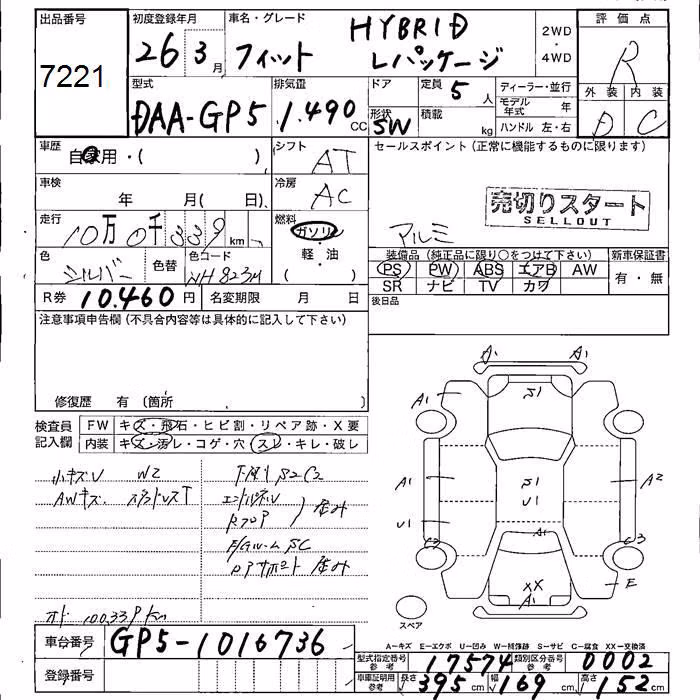 出品番号 初度登録年月 車名・グレード 評価点
7221 26 3月 フィット HYBRID Lパッケージ 2WD・4WD R
型式 排気量 ドア 定員 5人 ディーラー・並行 外装 内装
DAA-GP5 1.490 CC 形状 SW 積載 kg モデル年式 年 D C
ハンドル 左・右
車歴 自家用・( ) シフト AT セールスポイント (正常に機能するものに限ります)
車検 年 月( 日) 冷房 AC
売切りスタート
SELLOUT
走行 10万0千339km 燃料 ガソリン・軽・油 アルミ
色 シルバー 色替 色コード NH823M 装備品 (純正品に限り○をつけて下さい) 新車保証書
PS PW ABS エアB AW 有・無
SR ナビ TV カワ
R券 10.460円 名変期限 月 日 後日品
注意事項申告欄 (不具合内容等は具体的に記入して下さい)
修復歴 有 (箇所 )
検査員記入欄 FW キズ・飛石・ヒビ割・リペア跡・X要
内装 キズ・汚レ・コゲ・穴・スレ・キレ・破レ
A1 A1
A1 S1
小キズU W2
AWキズ
A1 S1 A2
U1 U1
A1
E
XX
A1
スペア
A-キズ E-エクボ U-凹み W-補修跡 S-サビ C-腐食 XX-交換済
車台番号 GP5-1016736
型式指定番号 参考 17574 類別区分番号 参考 0002
登録番号
車庫証明用 参考 長さ 395cm 幅 169cm 高さ 152cm